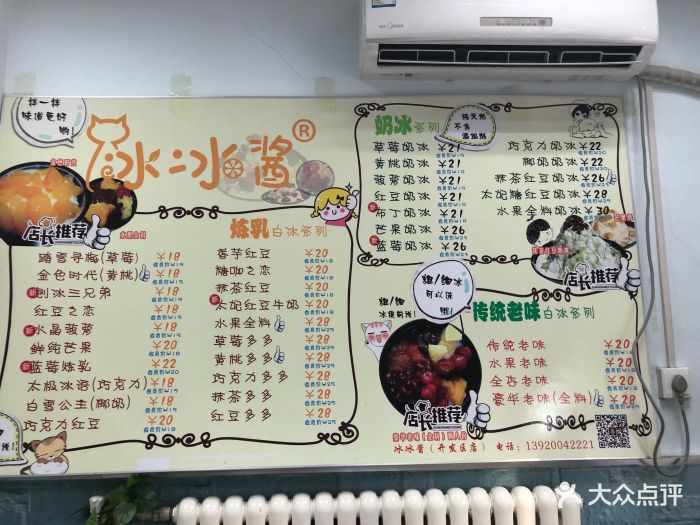 拌一拌
味道更好
哟!
冰冰酱®
店长推荐
水果全料
炼乳白冰系列
踏雪寻梅(草莓) ¥18
金色时代(黄桃) ¥18
新 刨冰三兄弟 ¥18
红豆之恋 ¥20
新 水晶菠萝 ¥18
鲜纯芒果 ¥20
新 蓝莓炼乳 ¥22
太极冰语(巧克力) ¥18
白雪公主(椰奶) ¥18
巧克力红豆 ¥20
香芋红豆 ¥20
糖咖之恋 ¥20
抹茶红豆 ¥20
新 太妃红豆牛奶 ¥20
水果全料 ¥28
草莓多多 ¥28
黄桃多多 ¥28
巧克力多多 ¥28
抹茶多多 ¥28
红豆多多 ¥28
奶冰系列
纯天然
不含
添加剂
草莓奶冰 ¥21
黄桃奶冰 ¥21
菠萝奶冰 ¥21
红豆奶冰 ¥21
新 布丁奶冰 ¥21
芒果奶冰 ¥26
新 蓝莓奶冰 ¥26
巧克力奶冰 ¥22
椰奶奶冰 ¥22
抹茶红豆奶冰 ¥26
太妃糖红豆奶冰 ¥26
水果全料奶冰 ¥30
店长推荐
粗/细冰
可以选
哦!
传统老味白冰系列
传统老味 ¥20
水果老味 ¥20
全杏老味 ¥20
豪华老味(全料) ¥28
店长推荐
豪华老味(全料)两人份
冰冰酱(开发区店) 电话:13920042221
Midea
大众点评